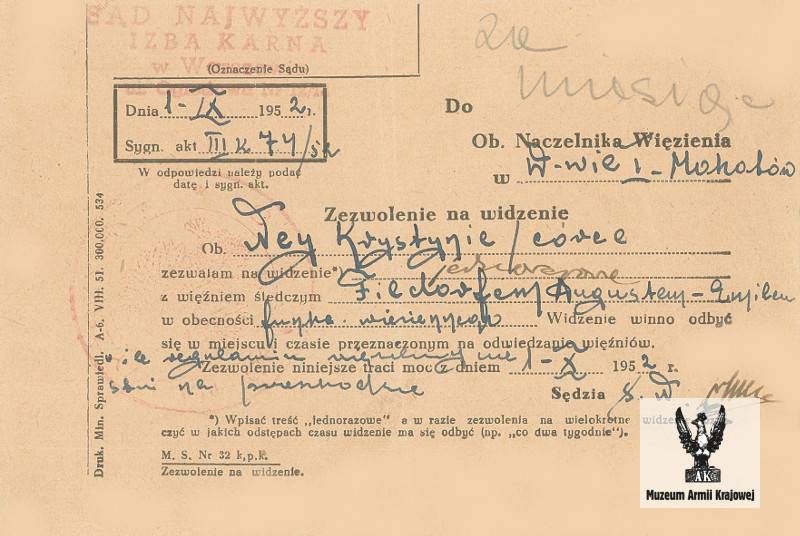 SĄD NAJWYŻSZY
IZBA KARNA
w Warszawie
(Oznaczenie Sądu)
za
miesiąc
Dnia 1-IX 1952 r.
Sygn. akt III K 74/52
W odpowiedzi należy podać
datę i sygn. akt.
Do
Ob. Naczelnika Więzienia
w W-wie I - Mokotów
Zezwolenie na widzenie
Ob. Ney Krystynie / córce
zezwalam na widzenie*) jednorazowe
z więźniem śledczym Fieldorfem Augustem-Emilem
w obecności funkc. więziennego Widzenie winno odbyć
się w miejscu i czasie przeznaczonym na odwiedzanie więźniów.
o ile regulamin więzienny nie
Zezwolenie niniejsze traci moc z dniem 1-X 1952 r.
stoi na przeszkodzie
Sędzia S. W.
*) Wpisać treść „jednorazowe" a w razie zezwolenia na wielokrotne widzenie
czyć w jakich odstępach czasu widzenie ma się odbyć (np. „co dwa tygodnie").
M. S. Nr 32 k.p.k.
Zezwolenie na widzenie.
Druk. Min. Sprawiedl. A-6. VIII. 51. 300.000. 534
AK
Muzeum Armii Krajowej